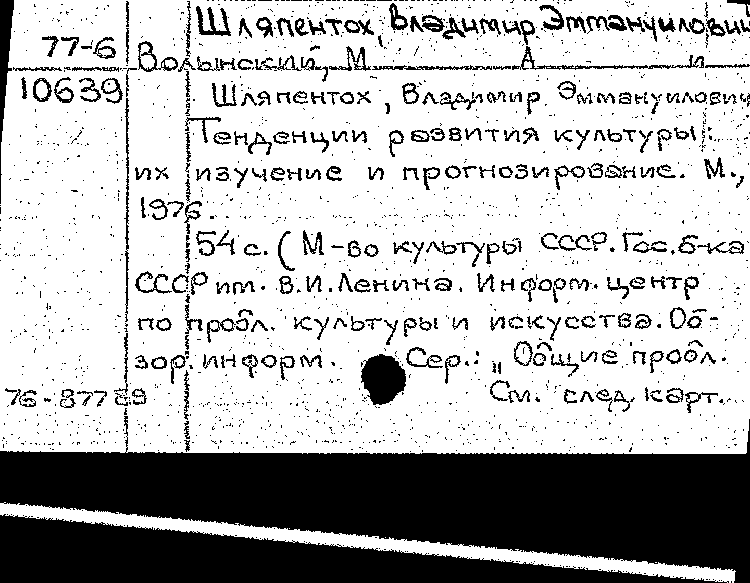 Шляпентох, Владимир Эммануилович
77-6 Волынский, М А и
10639 Шляпентох, Владимир Эммануилович
Тенденции развития культуры:
их изучение и прогнозирование. М.,
1976.
54 с. (М-во культуры СССР. Гос. б-ка
СССР им. В.И. Ленина. Информ. центр
по пробл. культуры и искусства. Об-
зор. информ. Сер.: „Общие пробл.
76-87789 См. след. карт.